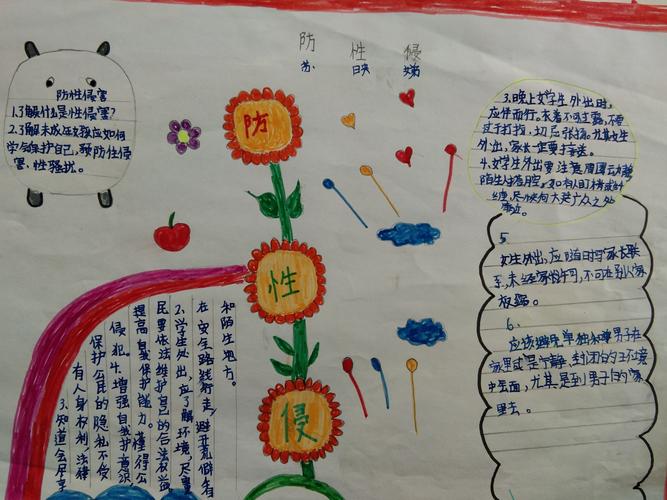 防 性 侵
防性侵害
1.了解什么是性侵害?
2.了解未成年女孩应如何
学会保护自己,预防性侵
害、性骚扰。
防
性
侵
3.晚上女学生外出时,
应伴而行。衣着不可过露,不要
过于打扮,切忌张扬。尤其女生
外出,家长一定要接送。
4.女学生外出要注意周围动静
陌生人搭腔,如有人盯梢或纠
缠,尽快向大庭广众之处
靠近。
5.
女生外出,应随时与家长联
系,未经家长许可,不可在别人家
夜宿。
6.
应该避免单独和男子在
家里或是宁静、封闭的环境
中会面,尤其是到男子的家
里去。
和陌生地方。
在安全路线行走,避开荒僻
2.学生外出,应了解环境,尽量
民要依法维护自己的合法权益
提高自我保护能力。懂得公
侵犯。4.增强自我护意识,
保护公民的隐私不受
有人身权利,法律
3.知道公民享